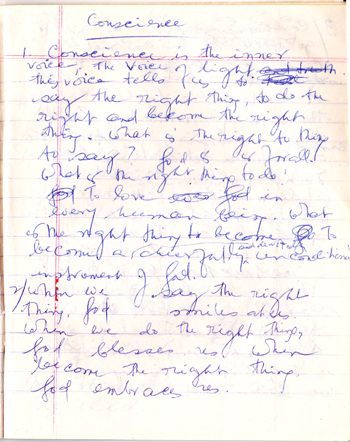 Conscience
1. Conscience is the inner
voice, the voice of light and truth
this voice tells us to
say the right thing, to do the
right and become the right
thing. What is the right to thing
to say? God is for all.
What is the right thing to do?
To love God in
every human being. What
is the right thing to become? To
become a cheerfully unconditional
instrument of God.
2) When we say the right
thing, God smiles at us.
When we do the right thing,
God blesses us. When
become the right thing
God embraces us.